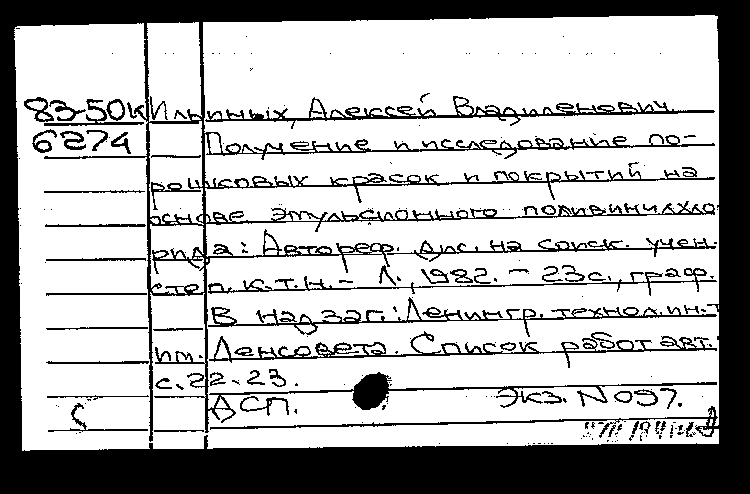 83-50к Ильиных, Алексей Владиленович
6274 Получение и исследование по-
рошковых красок и покрытий на
основе эмульсионного поливинилхло-
рида: Автореф. дис. на соиск. учен.
степ. к.т.н. - Л., 1982. - 23с., граф.
В надзаг.: Ленингр. технол. ин-т
им. Ленсовета. Список работ авт.:
с. 22-23.
ДСП. Экз. N 097.